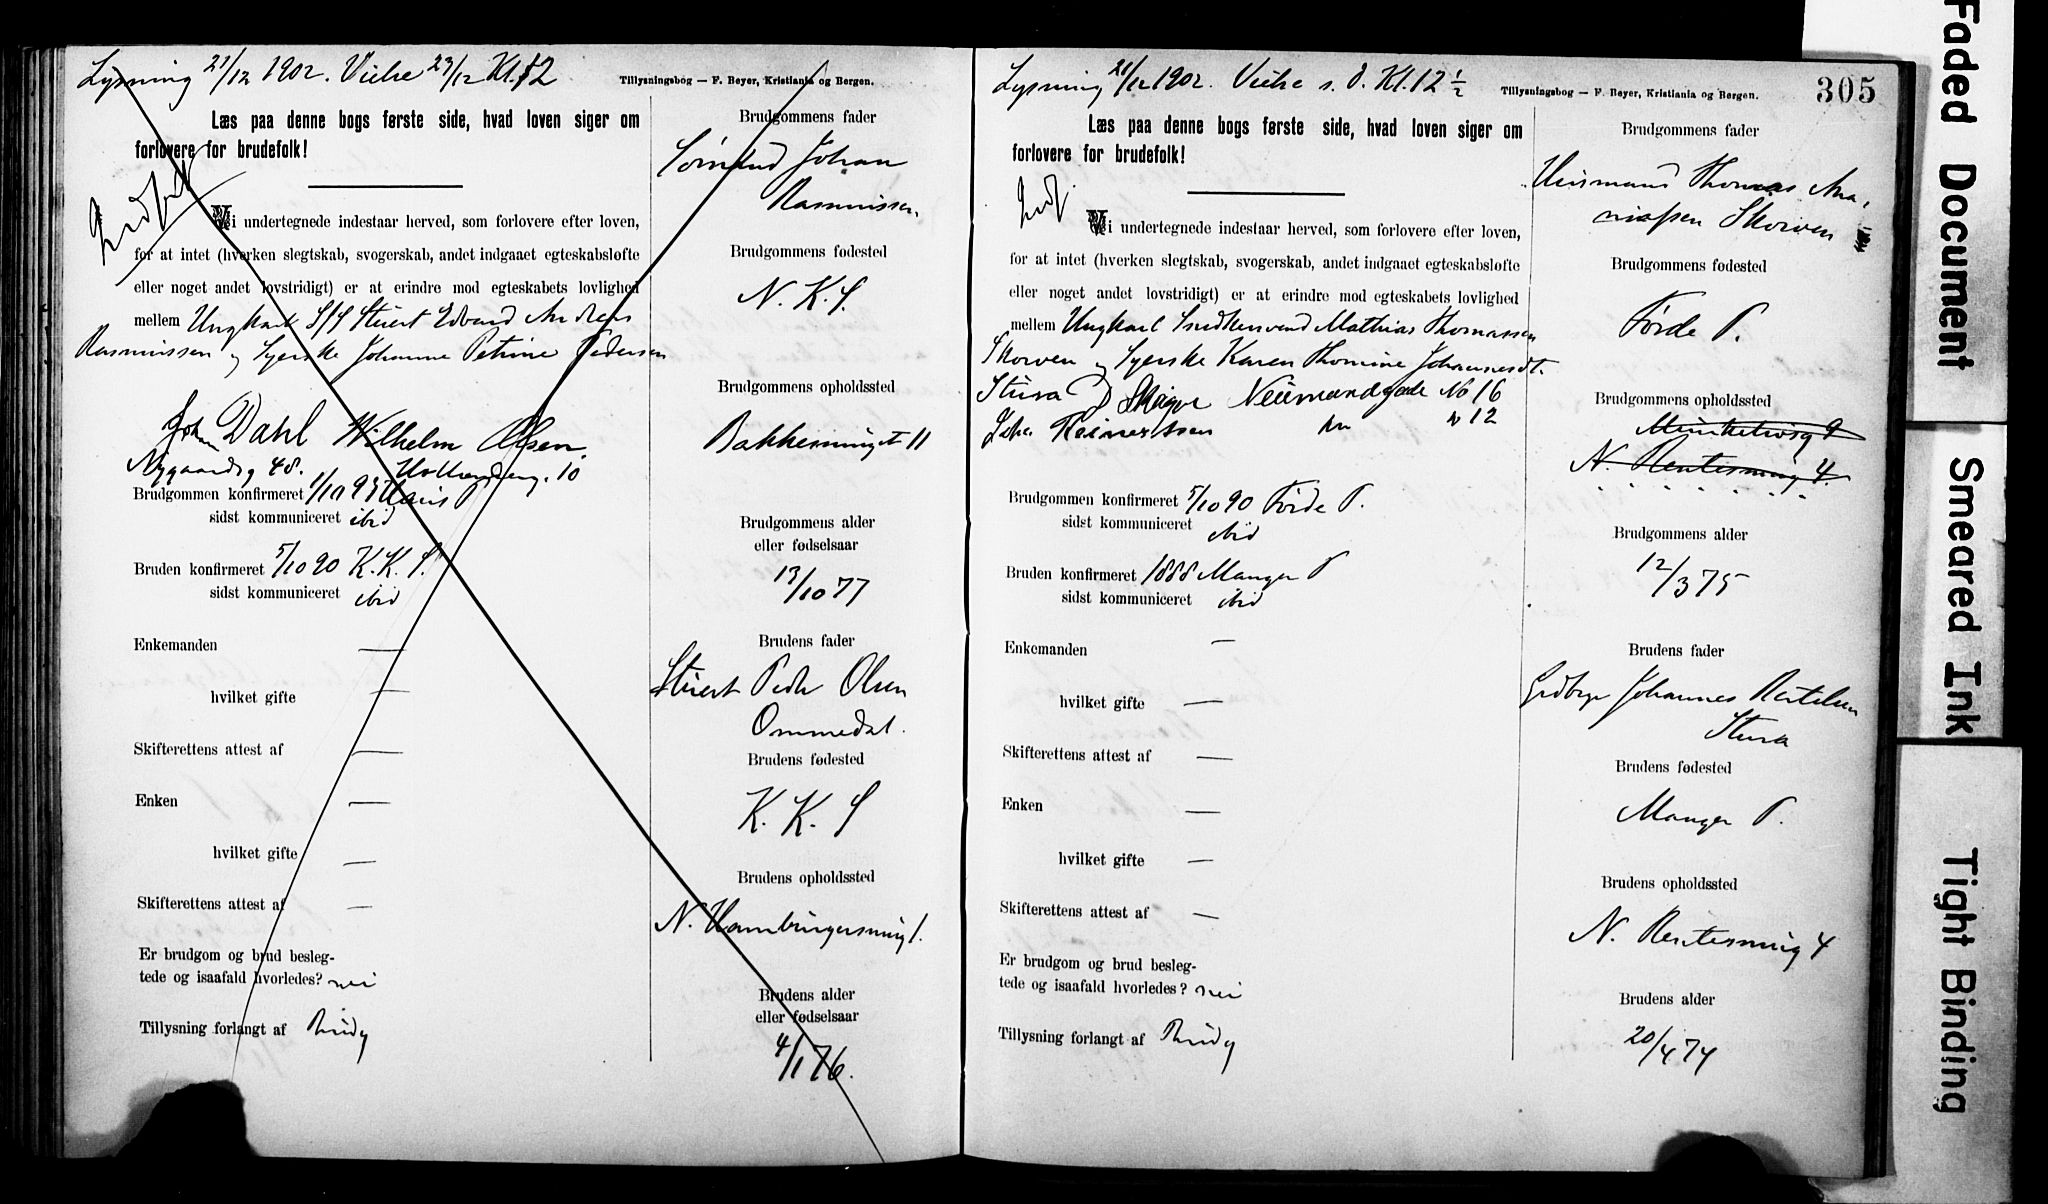 Lysning 21/12 1902. Vielse 23/12 Kl. 12
Tillysningsbog — F. Beyer, Kristiania og Bergen.
Læs paa denne bogs første side, hvad loven siger om
forlovere for brudefolk!
Indført
Vi undertegnede indestaar herved, som forlovere efter loven,
for at intet (hverken slegtskab, svogerskab, andet indgaaet egteskabsløfte
eller noget andet lovstridigt) er at erindre mod egteskabets lovlighed
mellem Ungkarl Stuert Edvard Andreas
Rasmussen og Syerske Johanne Petrine Pedersen
Johan Dahl Wilhelm Olsen.
Nygaardsg 48. 10
Brudgommen konfirmeret 1/10 93
sidst kommuniceret ibid
Bruden konfirmeret 5/10 90 K. K. S.
sidst kommuniceret ibid
Enkemanden —
hvilket gifte —
Skifterettens attest af —
Enken —
hvilket gifte —
Skifterettens attest af —
Er brudgom og brud besleg-
tede og isaafald hvorledes? nei
Tillysning forlangt af Brudg
Brudgommens fader
Johan
Rasmussen.
Brudgommens fødested
N. K. S.
Brudgommens opholdssted
Bakkesmuget 11
Brudgommens alder
eller fødselsaar
13/10 77
Brudens fader
Stuert Peder Olsen
Ommedal.
Brudens fødested
K. K. S
Brudens opholdssted
N. Hamburgersmug 1.
Brudens alder
eller fødselsaar
4/1 76.
Lysning 21/12 1902. Vielse s. d. Kl. 12 1/2
Tillysningsbog — F. Beyer, Kristiania og Bergen.
305
Læs paa denne bogs første side, hvad loven siger om
forlovere for brudefolk!
Indf
Vi undertegnede indestaar herved, som forlovere efter loven,
for at intet (hverken slegtskab, svogerskab, andet indgaaet egteskabsløfte
eller noget andet lovstridigt) er at erindre mod egteskabets lovlighed
mellem Ungkarl Snedkersvend Mathias Thomassen
Skorven og Syerske Karen Thomine Johannesdt.
Stura D Neumandsgade No 16
Reinertsen 12
Brudgommen konfirmeret 5/10 90 Førde P.
sidst kommuniceret ibid
Bruden konfirmeret 1888 Manger P
sidst kommuniceret ibid
Enkemanden —
hvilket gifte —
Skifterettens attest af —
Enken —
hvilket gifte —
Skifterettens attest af —
Er brudgom og brud besleg-
tede og isaafald hvorledes? nei
Tillysning forlangt af Brudg
Brudgommens fader
Husmand Thomas Ana-
niassen Skorven
Brudgommens fødested
Førde P.
Brudgommens opholdssted
N. Rentesmug 4.
Brudgommens alder
12/3 75
Brudens fader
Grdbrgr Johannes Bertelsen
Stura
Brudens fødested
Manger P.
Brudens opholdssted
N. Rentesmug 4
Brudens alder
20/4 74
Faded Document
Smeared Ink
Tight Binding